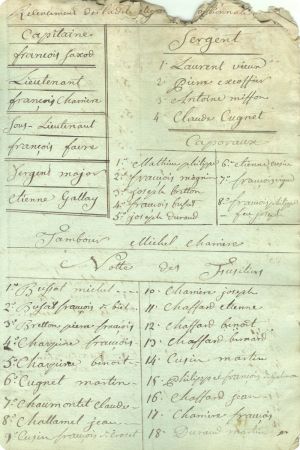 Capitaine
françois faxod
Lieutenant
françois Charriere
Sous-Lieutenant
françois favre
Sergent major
Etienne Gallay
Sergent
1 Laurent vieux
2 Pierre
3 Antoine miffon
4 Claude Cugnet
Caporaux
1° Mathieu philippe
2° françois mugnier
3° joseph bretton
4° françois buffat
5° joseph durand
6° etienne
7° françois
8° françois philippe
feu joseph
Tambour Michel Charriere
Notte des Fusiliers
1° Buffat michel
2° Buffat françois
3° Bretton pierre françois
4° Charriere françois
5° Charriere benoit
6° Cugnet martin
7° Chaumontet Claude
8° Chattamel jean
9° Cusin françois
10 Charriere joseph
11 Chaffard etienne
12 Chaffard benoit
13 Chaffard bernard
14 Cusin martin
15 Philippe françois
16 Chaffard jean
17 Charriere françois
18 Durand martin